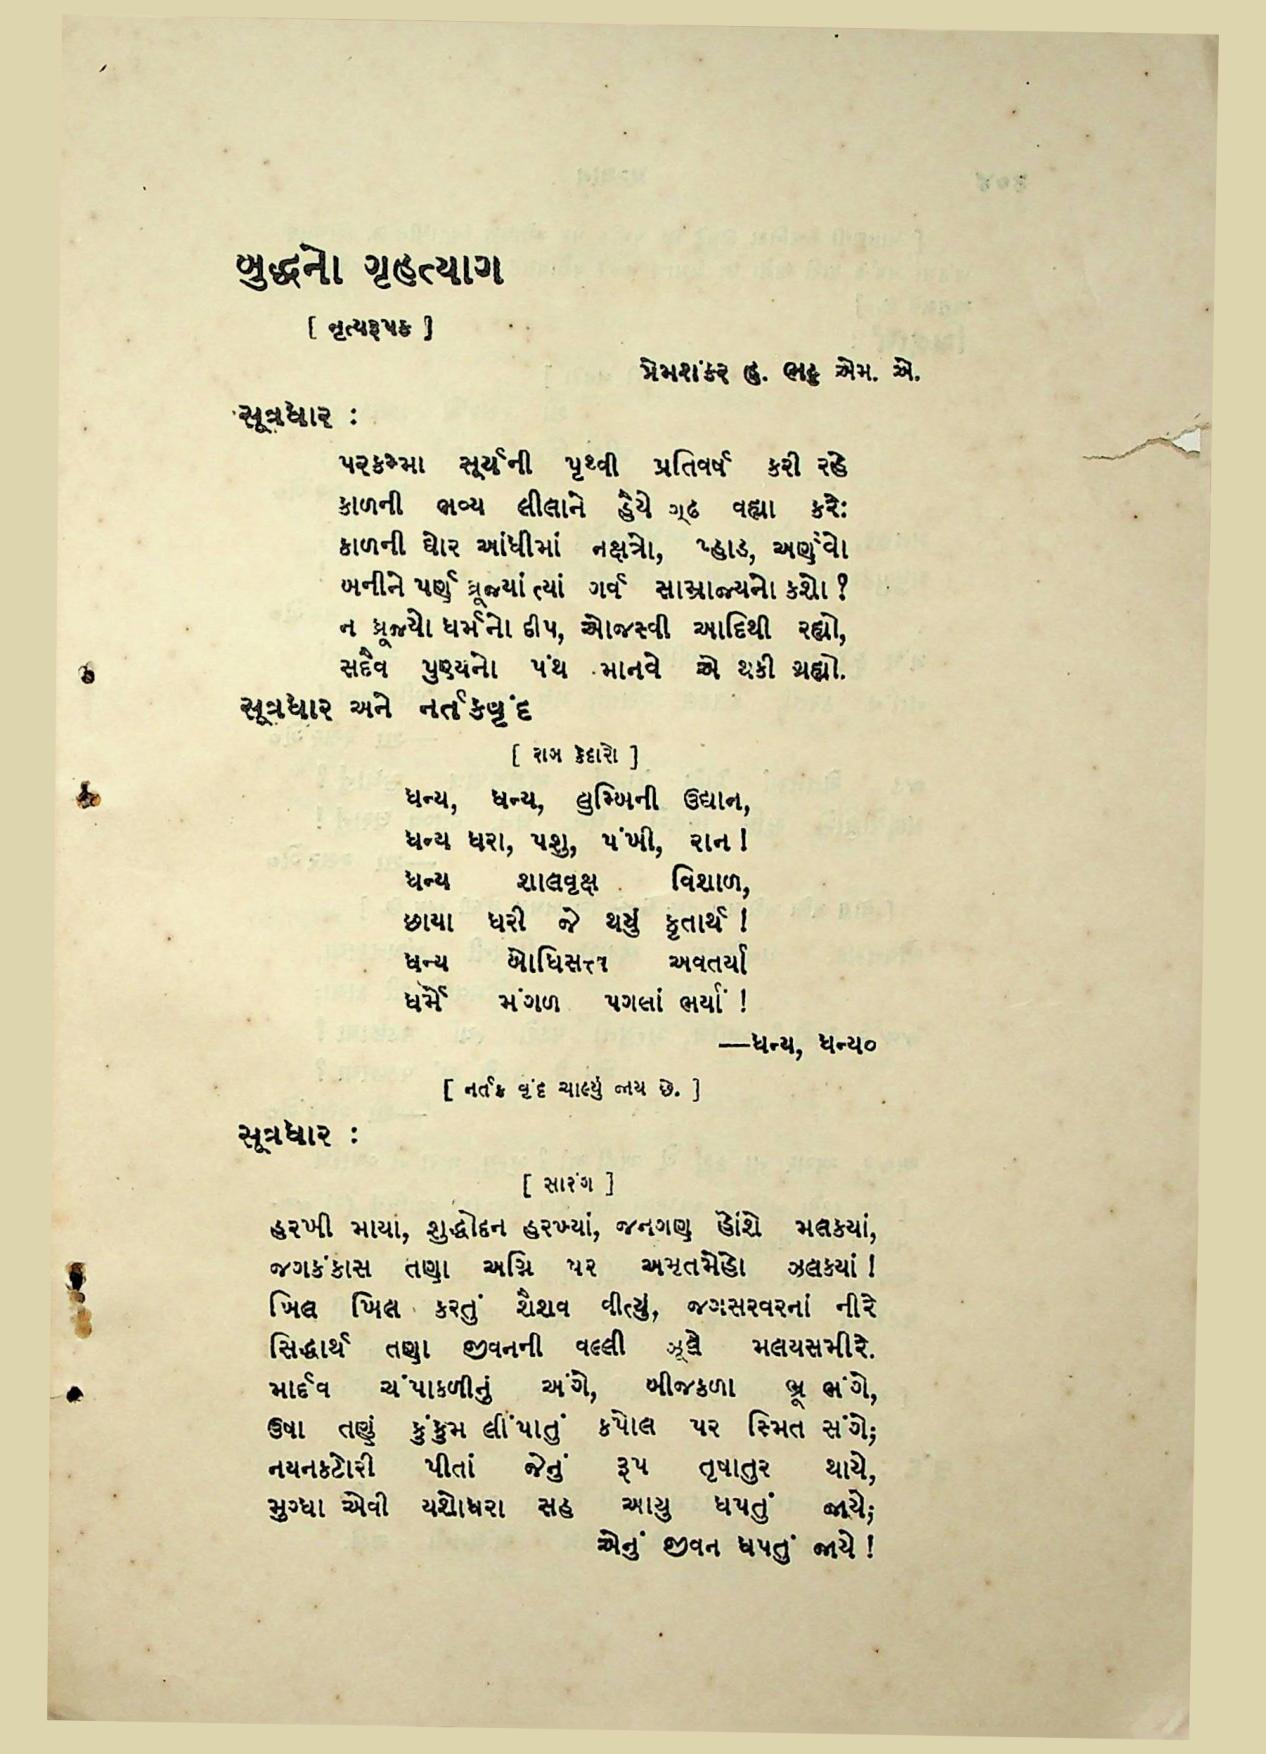 બુદ્ધનો ગૃહત્યાગ
[ નૃત્યરૂપક ]
પ્રેમશંકર હ. ભટ્ટ એમ. એ.
સૂત્રધાર :
પરકમ્મા સૂર્યની પૃથ્વી પ્રતિવર્ષ કરી રહે
કાળની ભવ્ય લીલાને હૈયે ગૂઢ વહ્યા કરે:
કાળની ઘોર આંધીમાં નક્ષત્રો, પ્હાડ, અર્ણવો
બનીને પર્ણ ધ્રૂજ્યાં ત્યાં ગર્વ સામ્રાજ્યનો કશો ?
ન ધ્રૂજ્યો ધર્મનો દીપ, ઓજસ્વી આદિથી રહ્યો,
સદૈવ પુણ્યનો પંથ માનવે એ થકી ગ્રહ્યો.
સૂત્રધાર અને નર્તકવૃંદ
[ રાગ કેદારો ]
ધન્ય, ધન્ય, લુમ્બિની ઉદ્યાન,
ધન્ય ધરા, પશુ, પંખી, રાન !
ધન્ય શાલવૃક્ષ વિશાળ,
છાયા ધરી જે થયું કૃતાર્થ !
ધન્ય બોધિસત્ત્વ અવતર્યા
ધર્મે મંગળ પગલાં ભર્યાં !
—ધન્ય, ધન્ય૦
[ નર્તક વૃંદ ચાલ્યું જાય છે. ]
સૂત્રધાર :
[ સારંગ ]
હરખી માયા, શુદ્ધોદન હરખ્યાં, જનગણ હોંશે મલકયાં,
જગકંકાસ તણા અગ્નિ પર અમૃતમેહો ઝલકયાં !
ખિલ ખિલ કરતું શૈશવ વીત્યું, જગસરવરનાં નીરે
સિદ્ધાર્થ તણા જીવનની વલ્લી ઝૂલે મલયસમીરે.
માર્દવ ચંપાકળીનું અંગે, બીજકળા ભ્રૂ ભંગે,
ઉષા તણું કુંકુમ લીંપાતું કપોલ પર સ્મિત સંગે;
નયનકટોરી પીતાં જેનું રૂપ તૃષાતુર થાયે,
મુગ્ધા એવી યશોધરા સહ આયુ ધપતું જાયે;
એનું જીવન ધપતું જાયે !